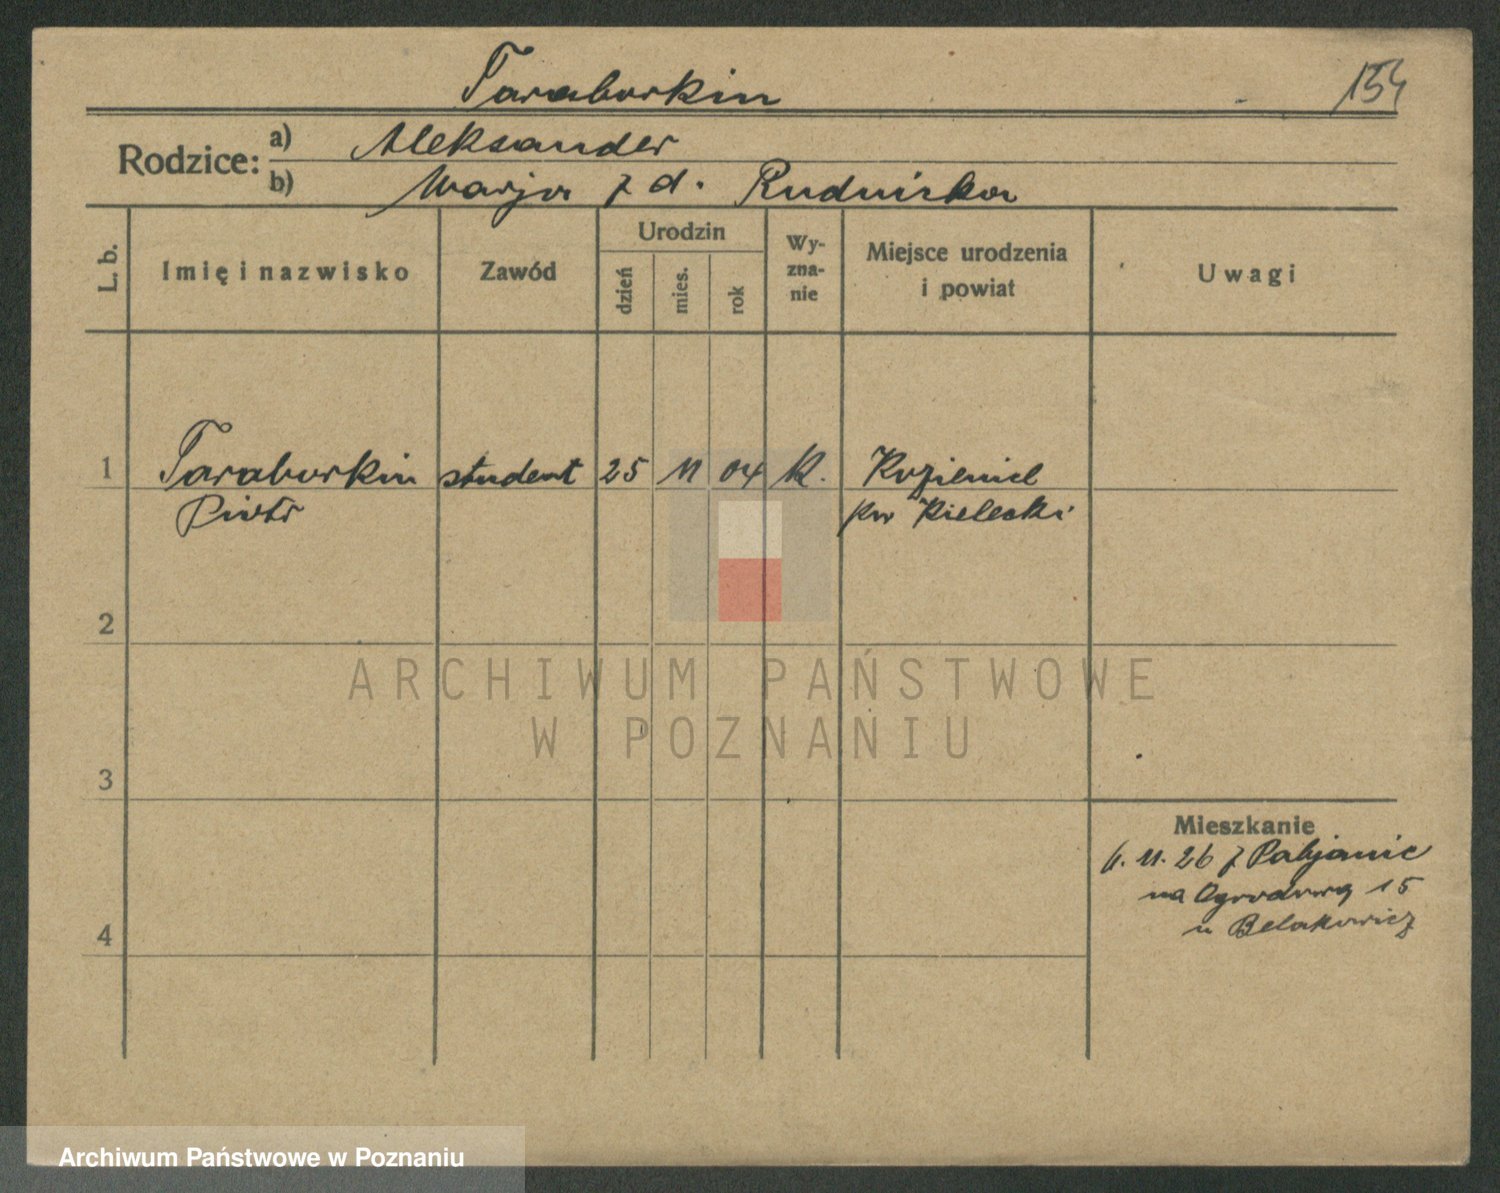 Taraborkin
154
Rodzice: a) Aleksander
b) Marja z d. Rudnicka
L. b.
Imię i nazwisko
Zawód
Urodzin
dzień
mies.
rok
Wy-
zna-
nie
Miejsce urodzenia
i powiat
Uwagi
1 Taraborkin student 25 11 04 K. Kozienice
Piotr pw Kielecki
2
3
4
ARCHIWUM PAŃSTWOWE
W POZNANIU
Mieszkanie
11. 26 z Pabjanic
na Ogrodową 15
u Belakowicz
Archiwum Państwowe w Poznaniu